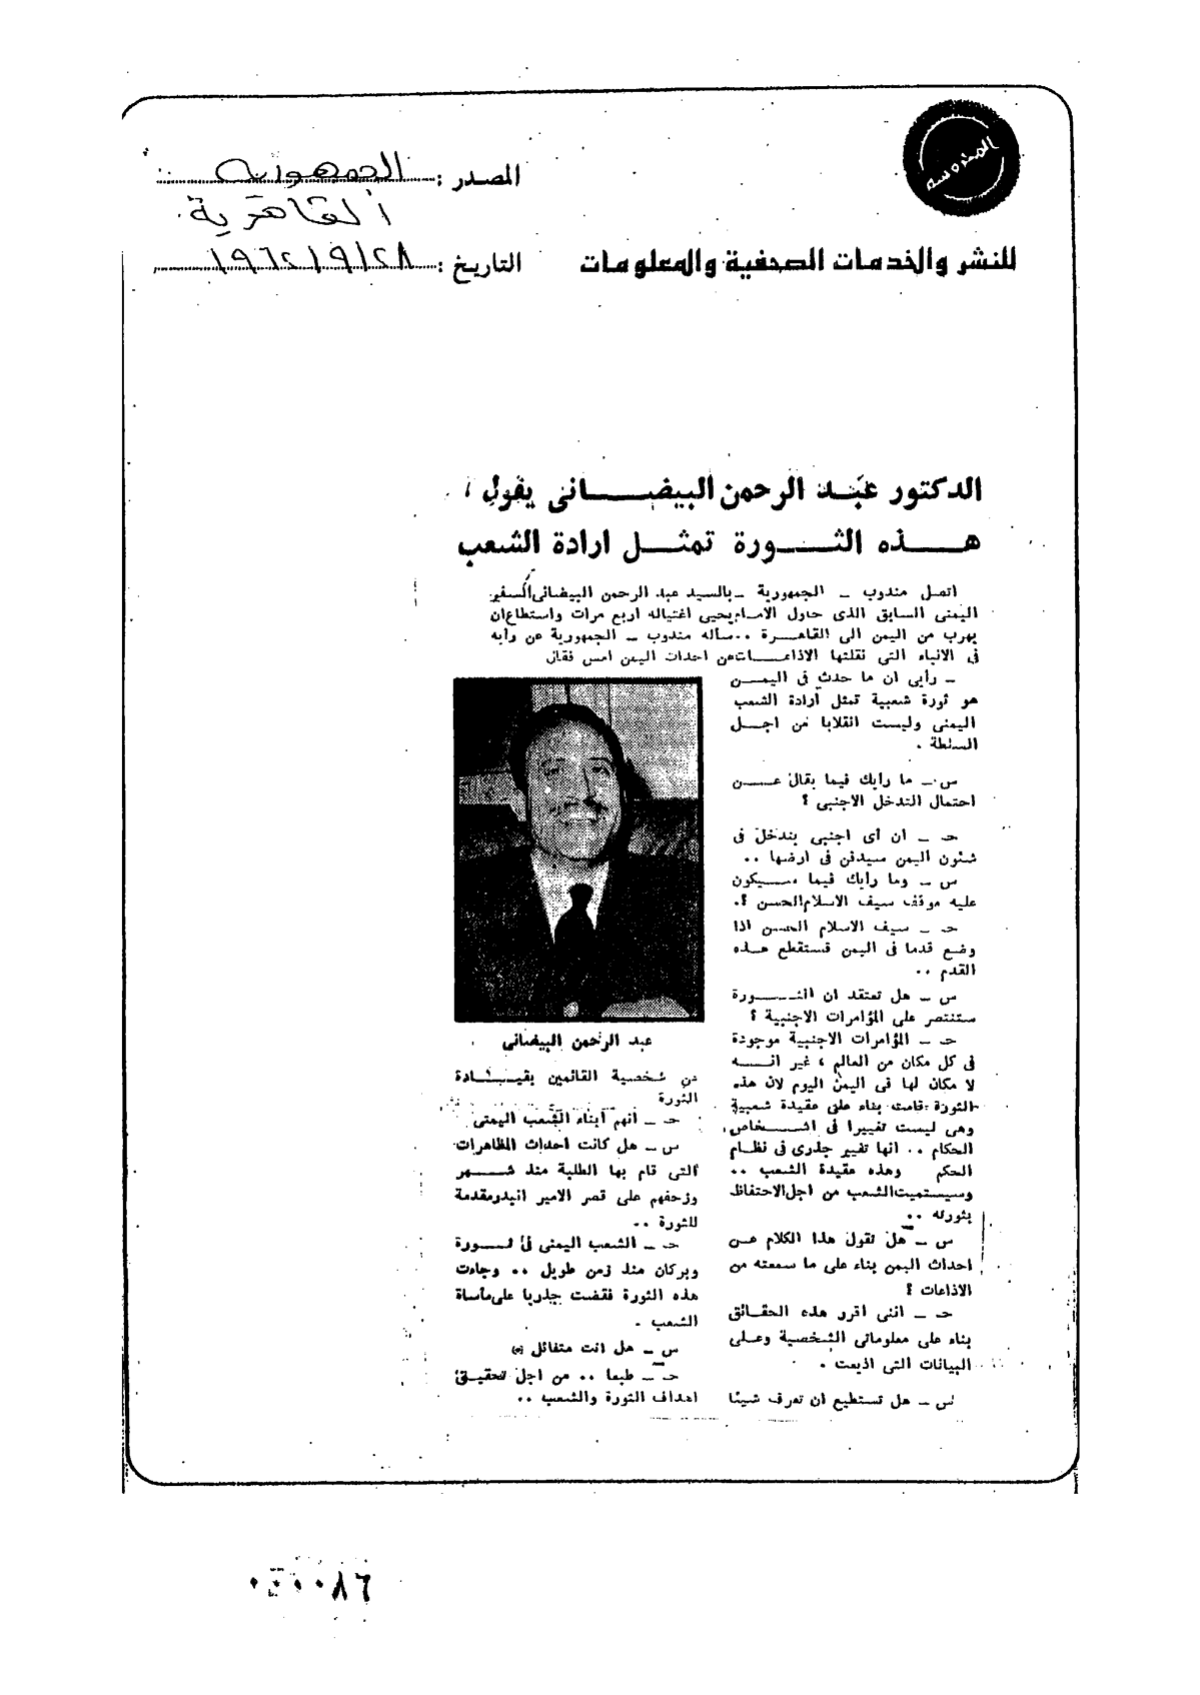 المحروسة
للنشر والخدمات الصحفية والمعلومات
المصدر : الجمهورية
القاهرية
التاريخ : ١٩٦٢/٩/٢٨
الدكتور عبد الرحمن البيضانى يقول :
هذه الثورة تمثل ارادة الشعب
اتصل مندوب ـ الجمهورية ـ بالسيد عبد الرحمن البيضانى السفير
اليمنى السابق الذى حاول الامام يحيى اغتياله اربع مرات واستطاع ان
يهرب من اليمن الى القاهرة .. سأله مندوب ـ الجمهورية عن رايه
فى الانباء التى نقلتها الاذاعات عن احداث اليمن امس فقال
ـ رأيى ان ما حدث فى اليمن
هو ثورة شعبية تمثل أرادة الشعب
اليمنى وليست انقلابا من اجل
السلطة .
س ـ ما رايك فيما يقال عن
احتمال التدخل الاجنبى ؟
جـ ـ ان أى اجنبى يتدخل فى
شئون اليمن سيدفن فى ارضها ..
س ـ وما رايك فيما سيكون
عليه موقف سيف الاسلام الحسن ؟.
جـ ـ سيف الاسلام الحسن اذا
وضع قدما فى اليمن فستقطع هذه
القدم ..
س ـ هل تعتقد ان الثورة
ستنتصر على المؤامرات الاجنبية ؟
جـ ـ المؤامرات الاجنبية موجودة
فى كل مكان من العالم ، غير انه
لا مكان لها فى اليمن اليوم لان هذه
الثورة قامت بناء على عقيدة شعبية
وهى ليست تغييرا فى اشخاص
الحكام .. انها تغيير جذرى فى نظام
الحكم وهذه عقيدة الشعب ..
وسيستميت الشعب من اجل الاحتفاظ
بثورته ..
س ـ هل تقول هذا الكلام عن
احداث اليمن بناء على ما سمعته من
الاذاعات ؟
جـ ـ اننى اقرر هذه الحقائق
بناء على معلوماتى الشخصية وعلى
البيانات التى اذيعت .
س ـ هل تستطيع ان تعرف شيئا
عبد الرحمن البيضانى
عن شخصية القائمين بقيادة
الثورة
جـ ـ أنهم أبناء الشعب اليمنى
س ـ هل كانت احداث المظاهرات
التى قام بها الطلبة منذ شهر
وزحفهم على قصر الامير البدر مقدمة
للثورة ..
جـ ـ الشعب اليمنى فى ثورة
وبركان منذ زمن طويل .. وجاءت
هذه الثورة فقضت جذريا على مأساة
الشعب .
س ـ هل انت متفائل ؟
جـ ـ طبعا .. من اجل تحقيق
اهداف الثورة والشعب ..